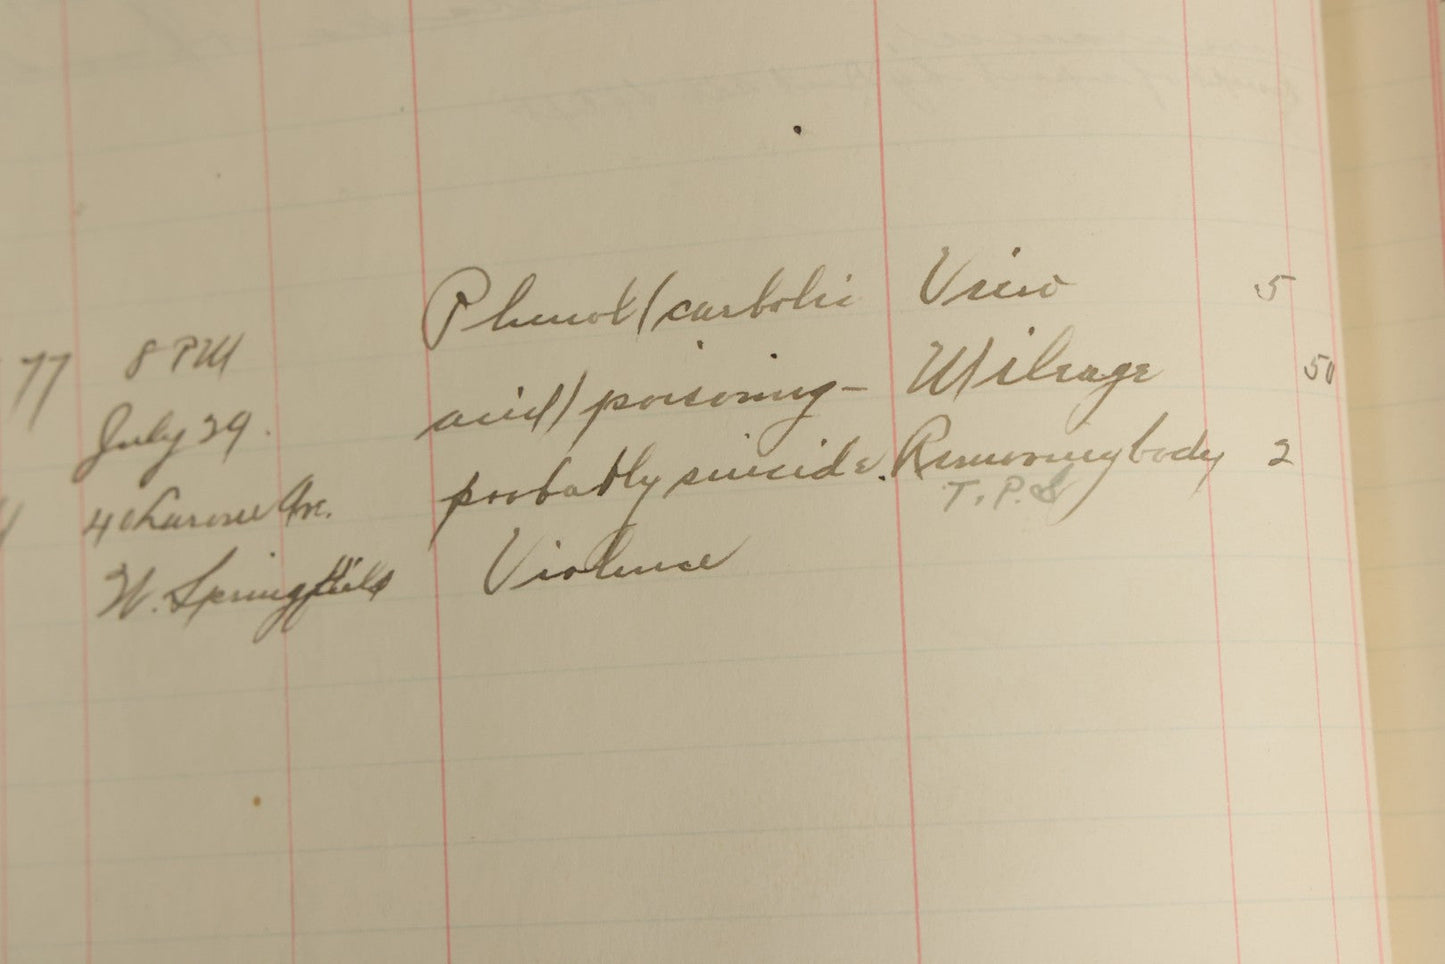 77
8 PM
July 29.
4 Ave.
W. Springfield
Phenol (carbolic
acid) poisoning –
probably suicide.
Violence
View 5
Mileage 50
Removing body 2
T. P. S